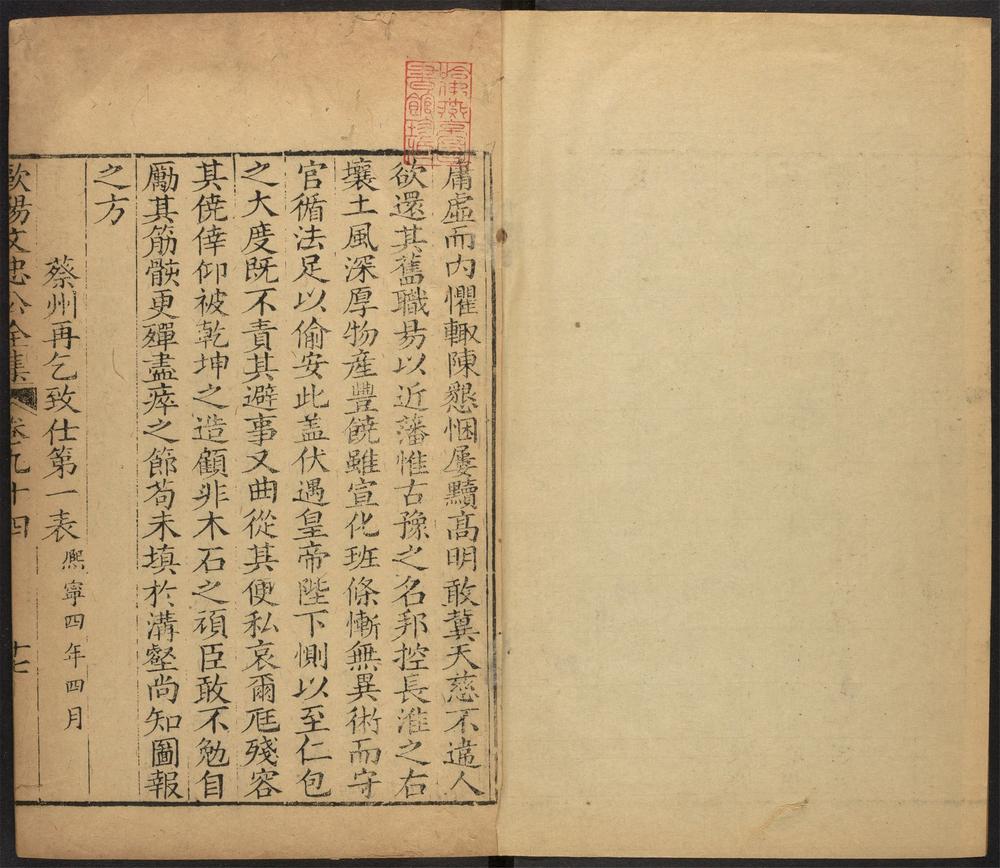 庸虛而内懼輙陳懇悃屢黷高明敢冀天慈不違人
欲還其舊職易以近藩惟古豫之名邦控長淮之右
壤土風深厚物產豐饒雖宣化班條慚無異術而守
官循法足以偷安此盖伏遇皇帝陛下惻以至仁包
之大度既不責其避事又曲從其便私哀爾尫殘容
其僥倖仰被乾坤之造顧非木石之頑臣敢不勉自
勵其筋骸更殫盡瘁之節苟未填於溝壑尚知圖報
之方
蔡州再乞致仕第一表熈寧四年四月
歐陽文忠公全集 卷九十四 十七